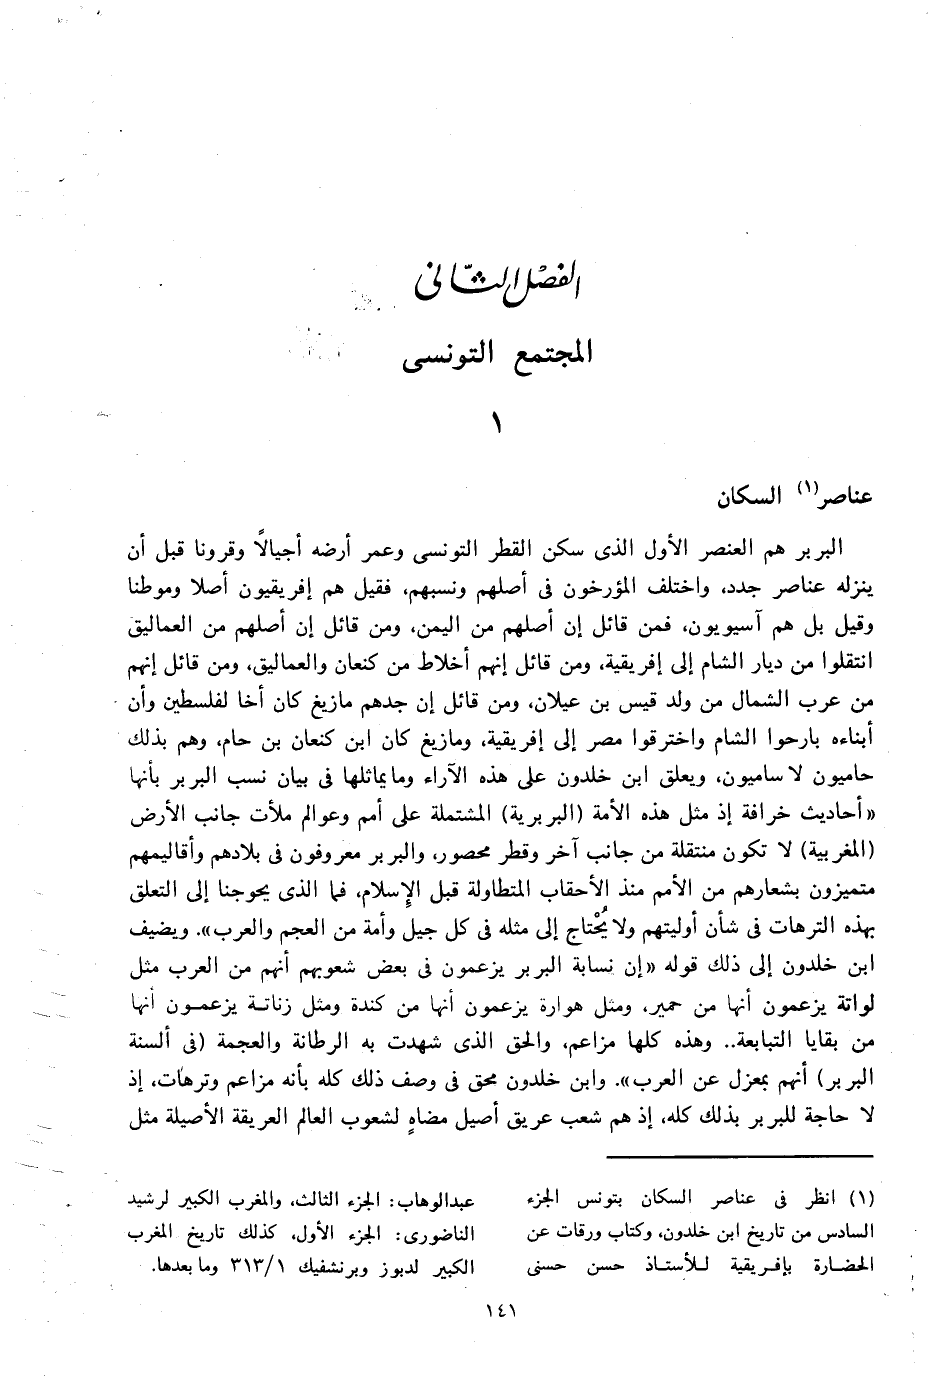 الفصل الثانى
المجتمع التونسى
١
عناصر(١) السكان
البربر هم العنصر الأول الذى سكن القطر التونسى وعمر أرضه أجيالًا وقرونا قبل أن
ينزله عناصر جدد، واختلف المؤرخون فى أصلهم ونسبهم، فقيل هم إفريقيون أصلا وموطنا
وقيل بل هم آسيويون، فمن قائل إن أصلهم من اليمن، ومن قائل إن أصلهم من العماليق
انتقلوا من ديار الشام إلى إفريقية، ومن قائل إنهم أخلاط من كنعان والعماليق، ومن قائل إنهم
من عرب الشمال من ولد قيس بن عيلان، ومن قائل إن جدهم مازيغ كان أخا لفلسطين وأن
أبناءه بارحوا الشام واخترقوا مصر إلى إفريقية، ومازيغ كان ابن كنعان بن حام، وهم بذلك
حاميون لا ساميون، ويعلق ابن خلدون على هذه الآراء ومايماثلها فى بيان نسب البربر بأنها
«أحاديث خرافة إذ مثل هذه الأمة (البربرية) المشتملة على أمم وعوالم ملأت جانب الأرض
(المغربية) لا تكون منتقلة من جانب آخر وقطر محصور، والبربر معروفون فى بلادهم وأقاليمهم
متميزون بشعارهم من الأمم منذ الأحقاب المتطاولة قبل الإسلام، فما الذى يحوجنا إلى التعلق
بهذه الترهات فى شأن أوليتهم ولا يُحْتاج إلى مثله فى كل جيل وأمة من العجم والعرب». ويضيف
ابن خلدون إلى ذلك قوله «إن نسابة البربر يزعمون فى بعض شعوبهم أنهم من العرب مثل
لواتة يزعمون أنها من حمير، ومثل هوارة يزعمون أنها من كندة ومثل زناتة يزعمون أنها
من بقايا التبابعة.. وهذه كلها مزاعم، والحق الذى شهدت به الرطانة والعجمة (فى ألسنة
البربر) أنهم بمعزل عن العرب». وابن خلدون محق فى وصف ذلك كله بأنه مزاعم وترهات، إذ
لا حاجة للبربر بذلك كله، إذ هم شعب عريق أصيل مضاهٍ لشعوب العالم العريقة الأصيلة مثل
(١) انظر فى عناصر السكان بتونس الجزء
السادس من تاريخ ابن خلدون، وكتاب ورقات عن
الحضارة بإفريقية للأستاذ حسن حسنى
عبدالوهاب: الجزء الثالث، والمغرب الكبير لرشيد
الناضورى: الجزء الأول، كذلك تاريخ المغرب
الكبير لدبوز وبرنشفيك ٣١٣/١ وما بعدها.
١٤١